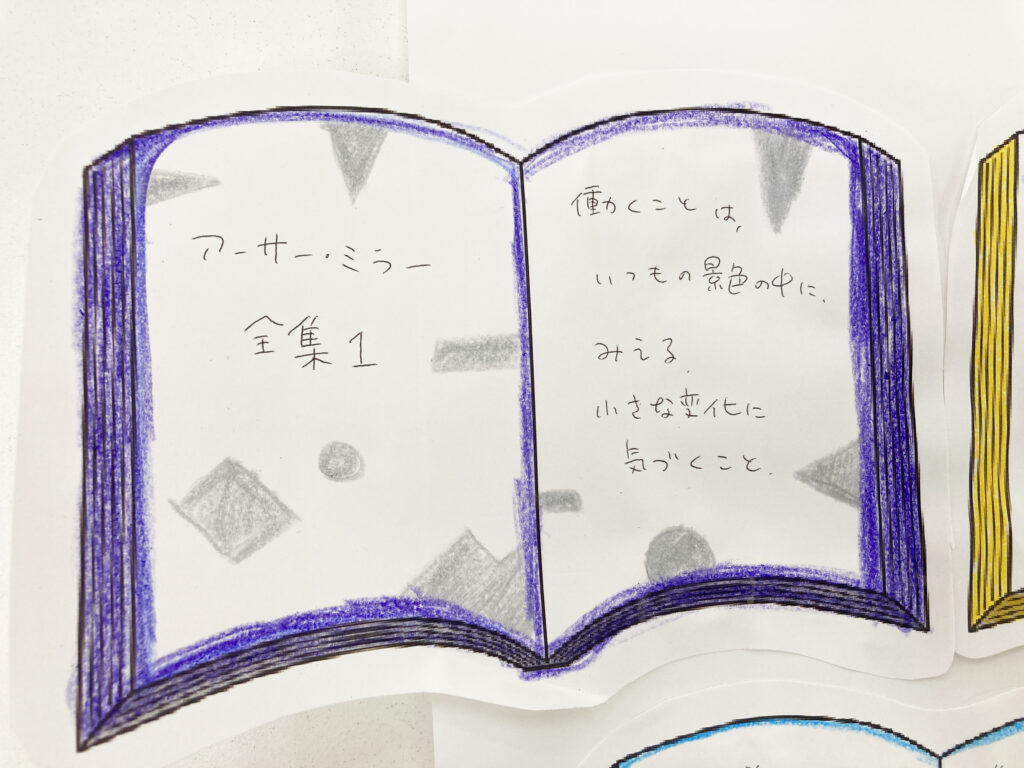 アーサー・ミラー
全集1
働くことは、
いつもの景色の中に、
みえる、
小さな変化に
気づくこと、